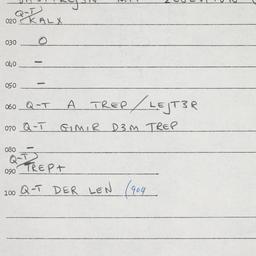 Q-T
020 KALX
030 O
040 —
050 —
060 Q-T A TREP / LEJT3R
070 Q-T GIMIR D3M TREP
080 —
Q-T
090 TREP+
100 Q-T DER LEN (909